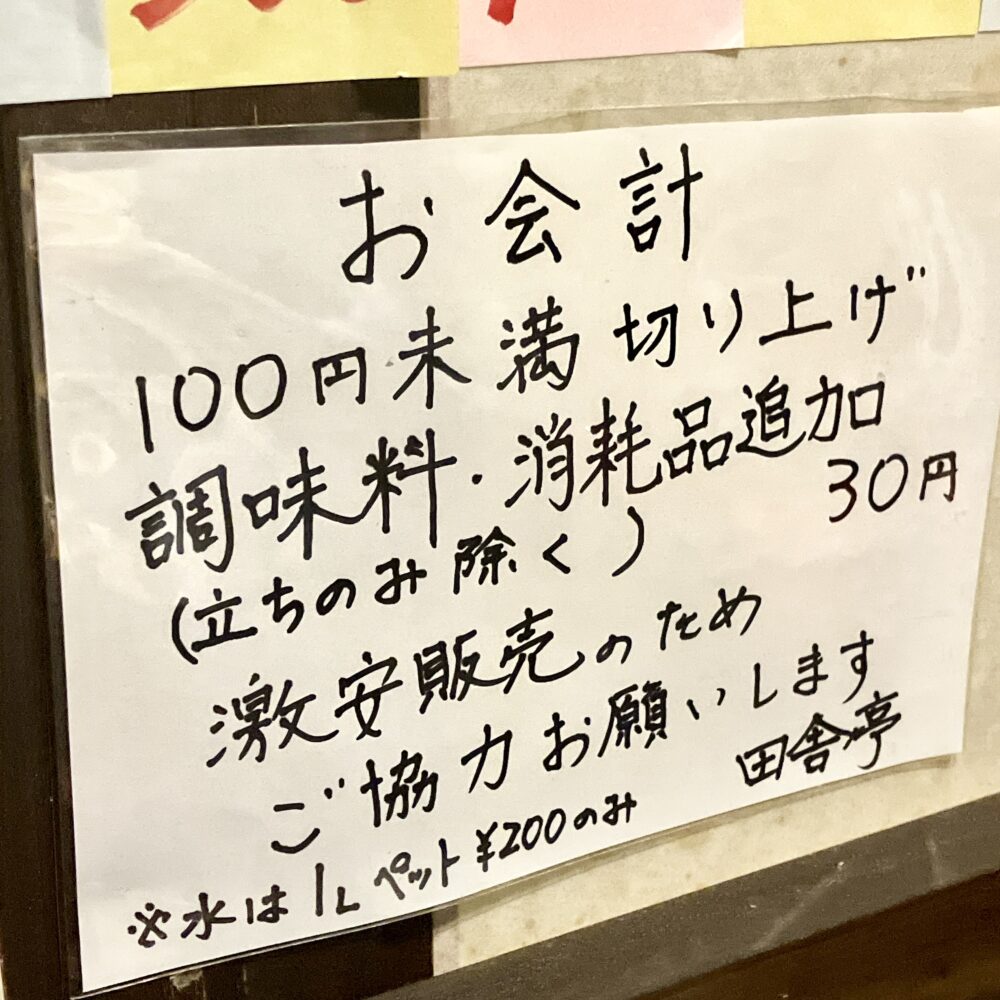 お会計
100円未満切り上げ
調味料・消耗品追加
30円
(立ちのみ除く)
激安販売のため
ご協力お願いします
田舎亭
※水は1Lペット¥200のみ